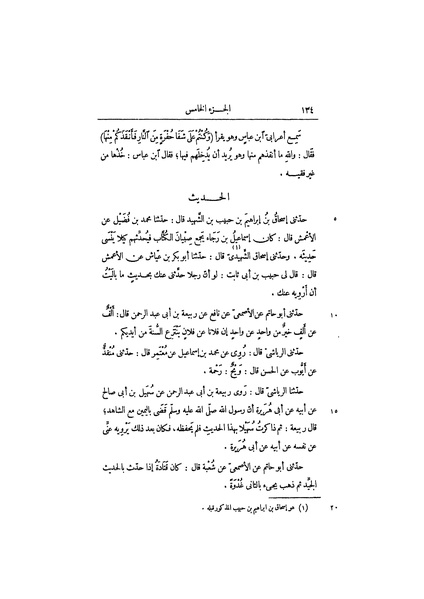 ١٣٤ الجزء الخامس
سَمِع أعرابىّ آبن عباس وهو يقرأ (وَكُنْتُمْ عَلَى شَفَا حُفْرَةٍ مِنَ النَّارِ فَأَنْقَذَكُمْ مِنْهَا)
فقال : والله ما أنقذهم منها وهو يُريد أن يُدخِلَهم فيها؛ فقال آبن عباس : خُذْها من
غير فقيه .
الحديث
٥ حدثنى إسحاق بنُ إبراهيم بن حبيب بن الشّهيد قال : حدّثنا محمد بن فُضَيل عن
الأعمش قال : كان إسماعيلُ بن رَجَاء يجمع صِبْيانَ الكُتّاب فيُحدّثهم كيلا يَنْسَى
حَديثَه . وحدّثنى إسحاق الشّهيدىّ(١) قال : حدّثنا أبو بكر بن عيّاش عن الأعمش
قال : قال لى حبيب بن أبى ثابت : لو أنّ رجلا حدّثنى عنك بحديثٍ ما باليْتُ
أن أرْوِيه عنك .
١٠ حدّثنى أبو حاتم عن الأصمعىّ عن نافع عن ربيعة بن أبى عبد الرحمن قال : أَلْفٌ
عن أَلْفٍ خيرٌ من واحدٍ عن واحدٍ إن فلانا عن فلانٍ يَنْتَزِع السُّنةَ من أيديكم .
حدّثنى الرياشىّ قال : رُوِى عن محمد بن إسماعيل عن مُعْتَمِر قال : حدّثنى مُنْقِذٌ
عن أيّوب عن الحسن قال : وَيْحٌ : رَحْمة .
حدّثنا الرياشىّ قال : رَوى ربيعة بن أبى عبد الرحمن عن سُهَيل بن أبى صالح
١٥ عن أبيه عن أبى هُرَيرة أنّ رسول الله صلّى الله عليه وسلّم قَضَى باليمين مع الشاهد؛
قال ربيعة : ثم ذاكرتُ سُهَيْلا بهذا الحديث فلم يَحفظه، فكان بعد ذلك يَرْوِيه عنّى
عن نفسه عن أبيه عن أبى هُريرة .
حدّثنى أبو حاتم عن الأصمعىّ عن شُعْبة قال : كان قَتَادَةُ إذا حدّث بالحديث
الجيّد ثم ذهب يجىء بالثانى غُدْوَةً .
٢٠ (١) هو إسحاق بن ابراهيم بن حبيب المذكور قبله .